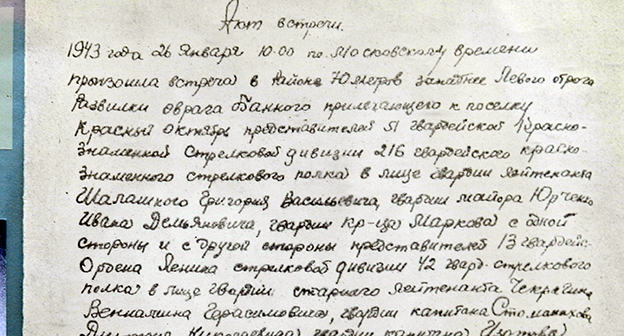 Акт встречи.
1943 года 26 Января 10.00 по Московскому времени
произошла встреча в районе 70 метров западнее Левого отрога
Развилки оврага Банного прилегающего к поселку
Красный Октябрь представителей 51 гвардейской Красно-
знаменной стрелковой дивизии 216 гвардейского красно-
знаменного стрелкового полка в лице гвардии лейтенанта
Шалашкого Григория Васильевича, гвардии майора Юрченко
Ивана Демьяновича, гвардии кр-ца Маркова с одной
стороны и с другой стороны представителей 13 гвардейс.
Ордена Ленина стрелковой дивизии 42 гвард. стрелкового
полка в лице гвардии старшего лейтенанта Чекрягина
Вениамина Герасимовича, гвардии капитана
Николаевича гвардии капитана